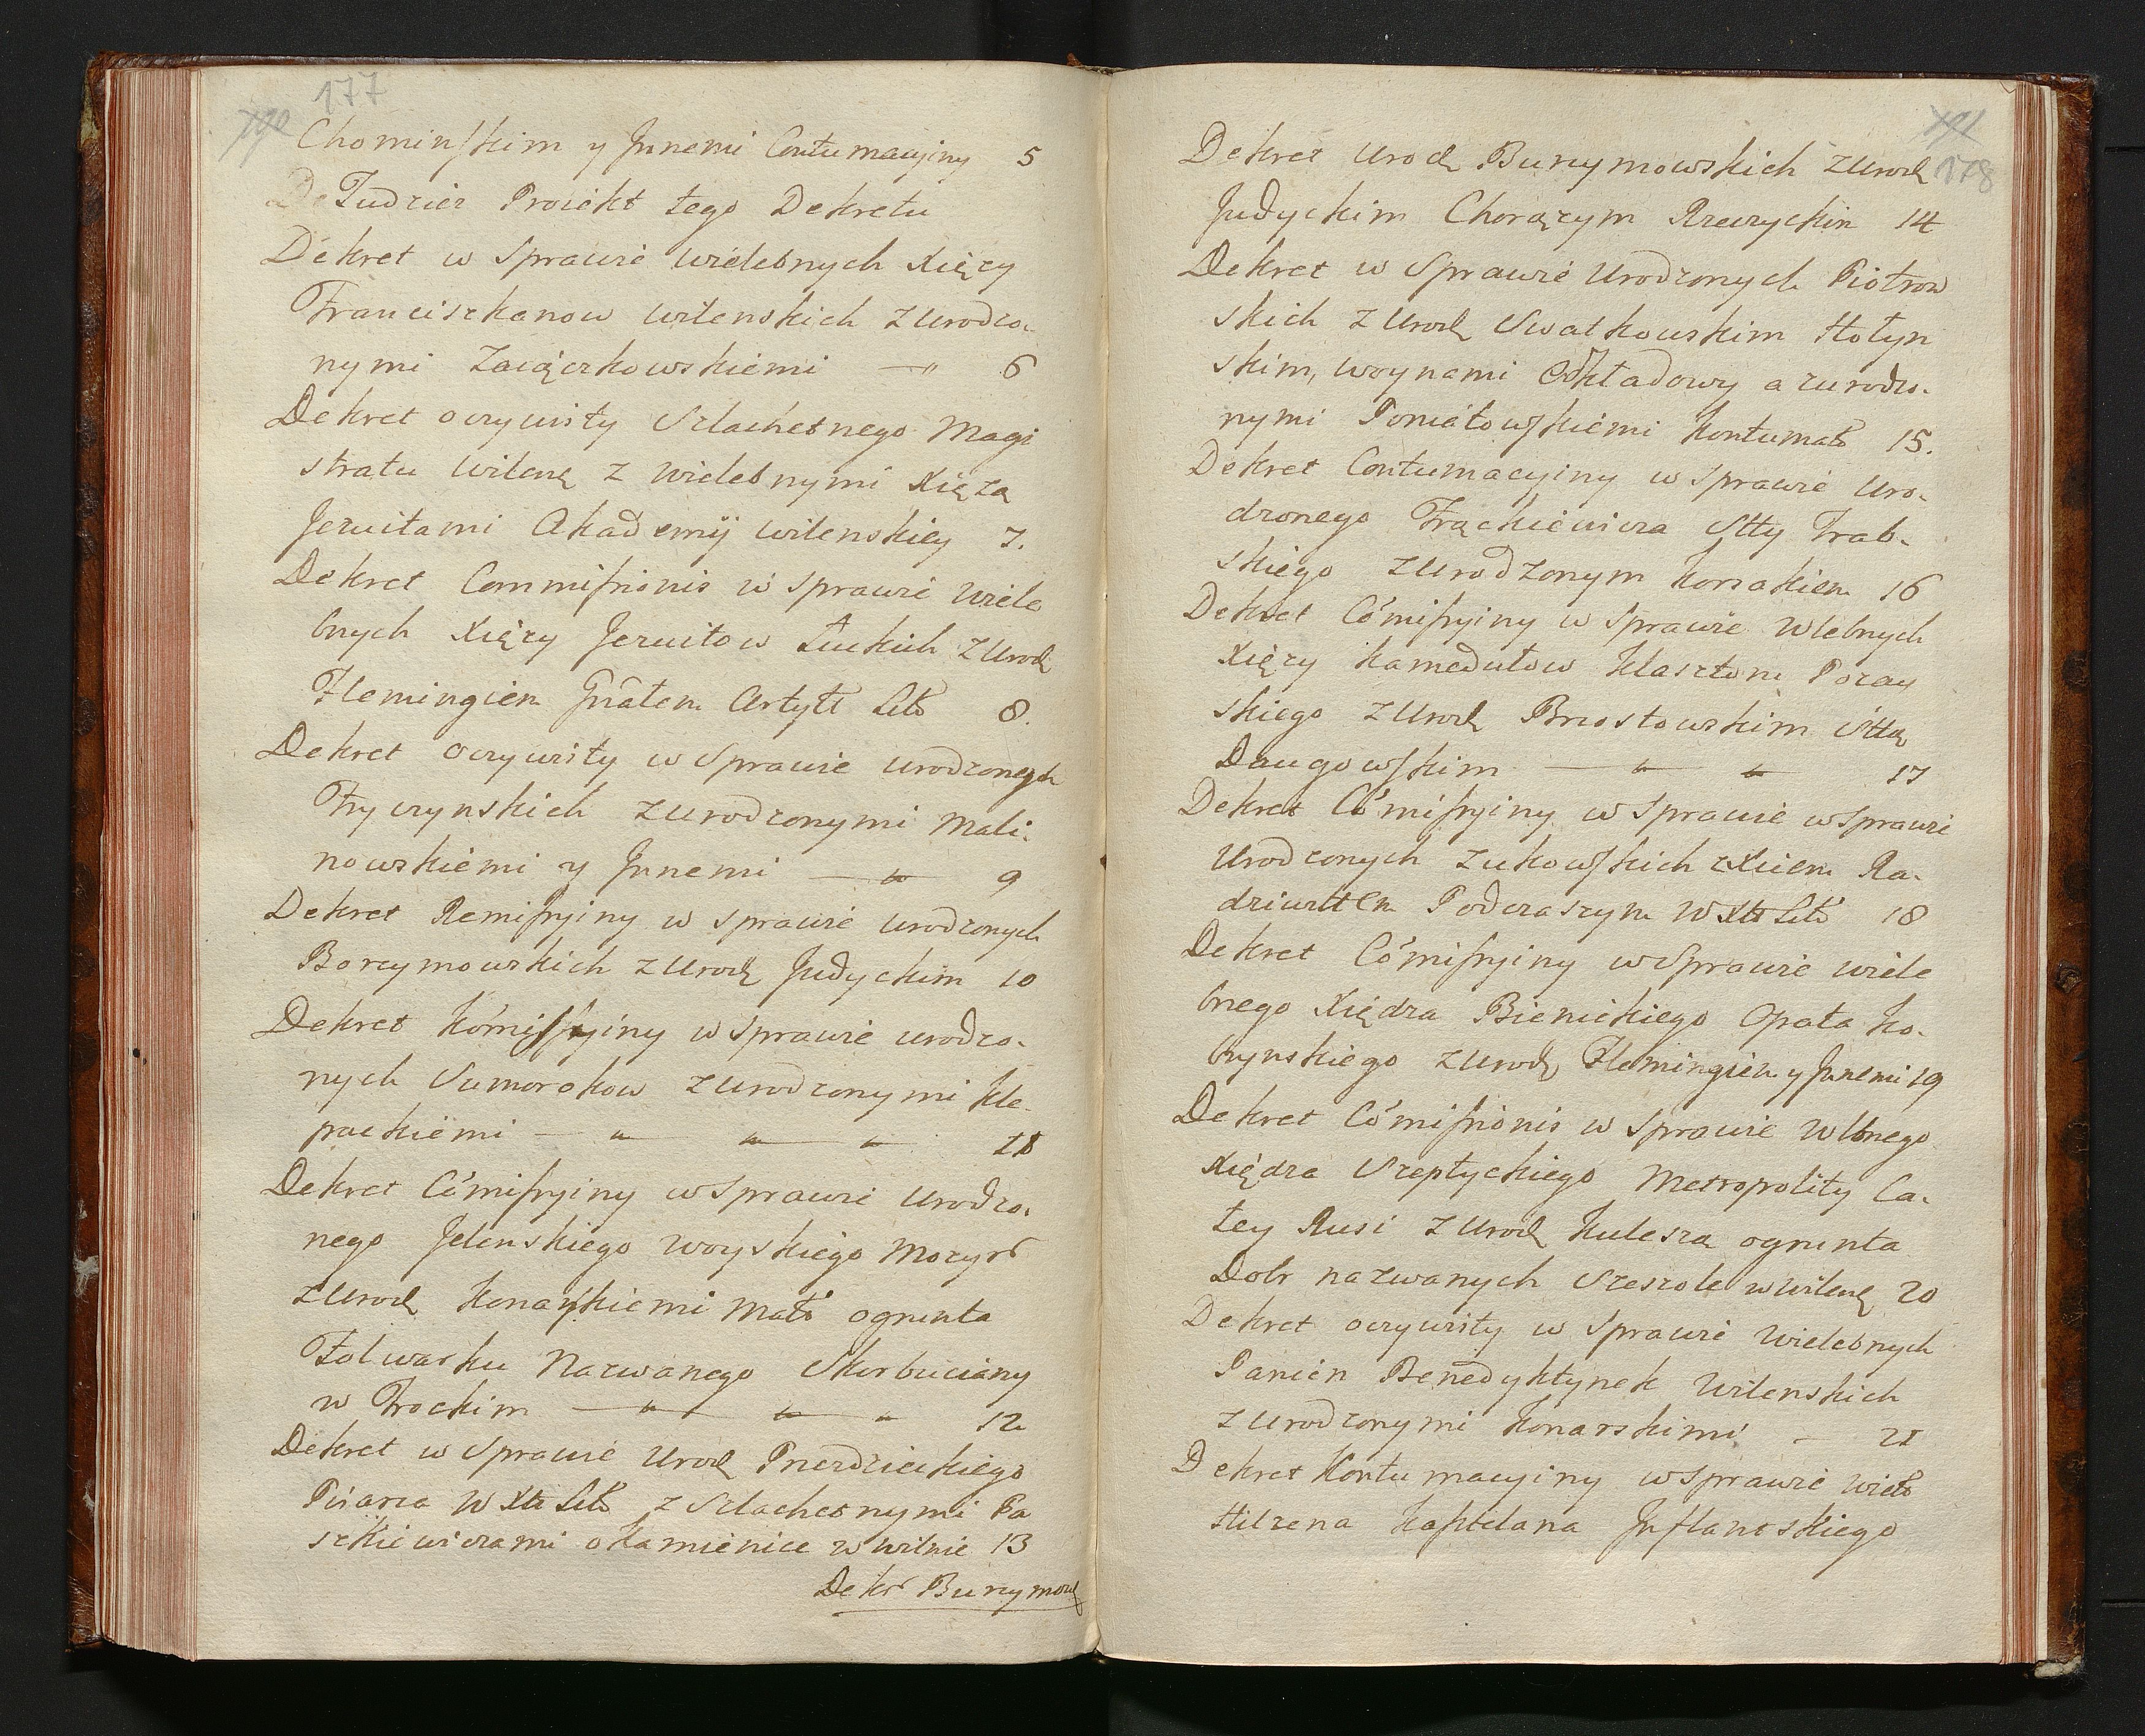 177
Chominſkim y Jnnemi Contumacyiny 5
Tudziez Proiekt tego Dekretu
Dekret w Sprawie wielebnych Xięzy
Franciszkanow wilenskich z Urodzo-
nymi Zaiączkowskiemi — " 6
Dekret oczywisty Szlachetnego Magi
stratu wilenę z wielebnymi Xięza
Jezuitami Akademij wilenskiey 7.
Dekret Commiſsionis w Sprawie Wiele
bnych Xięzy Jezuitow Łuckich z Urodę
Flemingiem Gnałem Artyll Litt 8.
Dekret oczywisty w Sprawie urodzonych
Tryczynskich z urodzonymi Mali-
nowskiemi y Jnnemi — " 9
Dekret Remiſsyiny w Sprawie urodzonych
Borzymowskich z Urodę Judyckim 10
Dekret Kómiſsyiny w Sprawie urodzo-
nych Sumorokow z Urodzonymi Kle-
packiemi — " — " — " 11
Dekret Cómiſsyiny w Sprawie Urodzo-
nego Jelenskiego Woyskiego Mozyrś
z Urodę Konarſkiemi Małż o grunta
Folwarku Nazwanego Skorbuciany
w Trockim — " — " — " 12
Dekret w Sprawie Urodę Przezdzieckiego
Pisarza W Xa Litt z Szlachetnymi Pa
szkiewiczami o Kamienice w wilnie 13
Dekr Burzymowę
178
Dekret Urodę Burzymowskich z Urodę
Judyckim Chorązym Rzeczyckim 14
Dekret w Sprawie Urodzonych Piotrow
skich z Urodę Swatkowskim Hołyn
skim, Woynami Odkładowy a z urodzo-
nymi Poniatowſkiemi Kontumać 15.
Dekret Contumacyiny w Sprawie Uro-
dzonego Frąckiewicza Sttty Trab-
skiego z Urodzonym Korsakiem 16
Dekret Cómiſsyiny w Sprawie Wlebnych
Xięzy Kamedułow Klasztoru Pozay
skiego z Urodę Brzostowskim Sttą
Daugowſkim — " — " 17
Dekret Cómiſsyiny w Sprawie w Sprawie
Urodzonych Zukowſkich z Xciem Ra-
dziwiłłem Podczaszym W Xa Litt 18
Dekret Cómiſsyiny w Sprawie wiele
bnego Xiędza Bienickiego Opata Ko-
brynskiego z Urodę Flemingiem y Jnnemi 19
Dekret Cómiſsionis w Sprawie Wlbnego
Xiędza Szeptyckiego Metropolity Ca-
łey Rusi z Urodę Kulesza o grunta
Dobr nazwanych Szeszole w wilenę 20
Dekret oczywisty w Sprawie Wielebnych
Panien Benedyktynek Wilenskich
z Urodzonymi Konarskimi — 21
Dekret Kontumacyiny w Sprawie Wiel
Hilzena Kasztelana Jnflantskiego